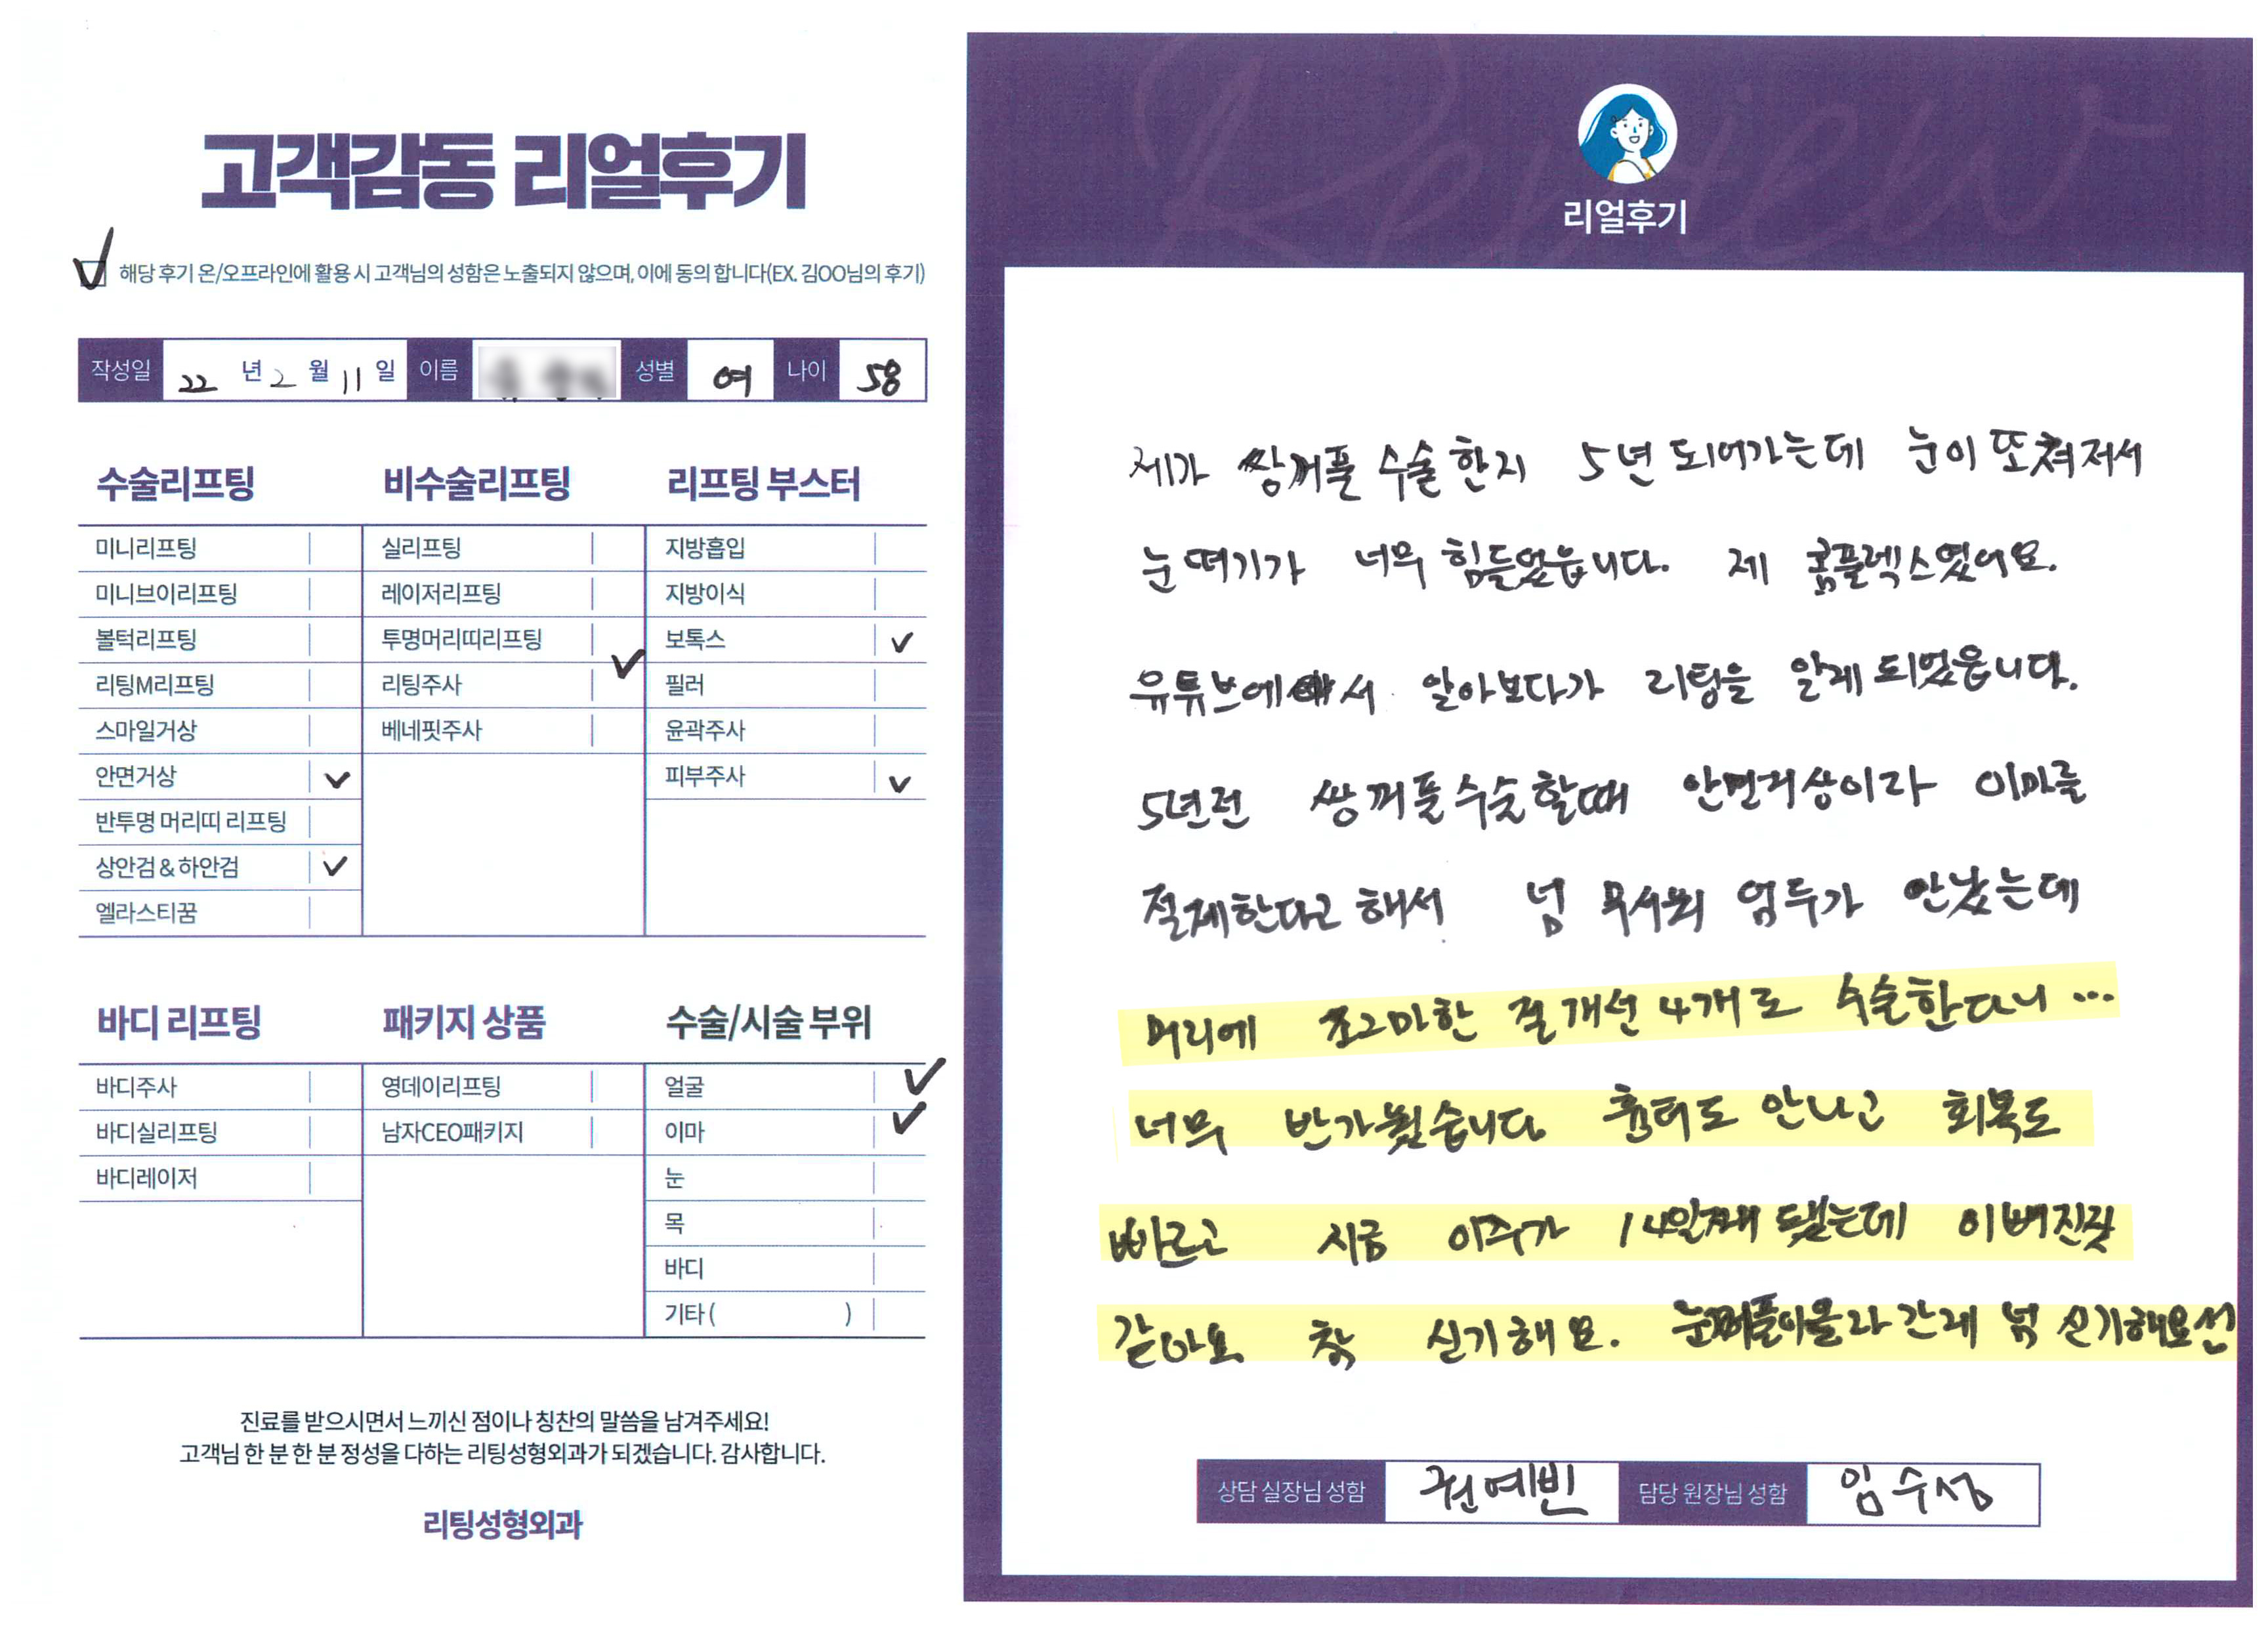 고객감동 리얼후기
해당 후기 온/오프라인에 활용 시 고객님의 성함은 노출되지 않으며, 이에 동의 합니다(EX. 김OO님의 후기)
작성일 22 년 2 월 11 일 이름 성별 여 나이 58
수술리프팅
미니리프팅
미니브이리프팅
볼턱리프팅
리팅M리프팅
스마일거상
안면거상 ✓
반투명 머리띠 리프팅
상안검 & 하안검 ✓
엘라스티꿈
비수술리프팅
실리프팅
레이저리프팅
투명머리띠리프팅
리팅주사 ✓
베네핏주사
리프팅 부스터
지방흡입
지방이식
보톡스 ✓
필러
윤곽주사
피부주사 ✓
바디 리프팅
바디주사
바디실리프팅
바디레이저
패키지 상품
영데이리프팅
남자CEO패키지
수술/시술 부위
얼굴 ✓
이마 ✓
눈
목
바디
기타 ( )
진료를 받으시면서 느끼신 점이나 칭찬의 말씀을 남겨주세요!
고객님 한 분 한 분 정성을 다하는 리팅성형외과가 되겠습니다. 감사합니다.
리팅성형외과
Review
리얼후기
제가 쌍꺼풀 수술한지 5년 되어가는데 눈이 또쳐저서
눈 떠기가 너무 힘들었읍니다. 제 콤플렉스였어요.
유튜브에서 알아보다가 리팅을 알게 되었읍니다.
5년전 쌍꺼풀수술할때 안면거상이라 이마를
절제한다고 해서 넘 무서워 엄두가 안났는데
머리에 조그마한 절개선 4개로 수술한다니 ...
너무 반가웠습니다 흉터도 안나고 회복도
빠르고 지금 이주가 14일째 됐는데 이뻐진것
같아요 참 신기해요. 눈꺼풀이올라간게 넘 신기해요선
상담 실장님 성함 권예빈 담당 원장님 성함 임수성